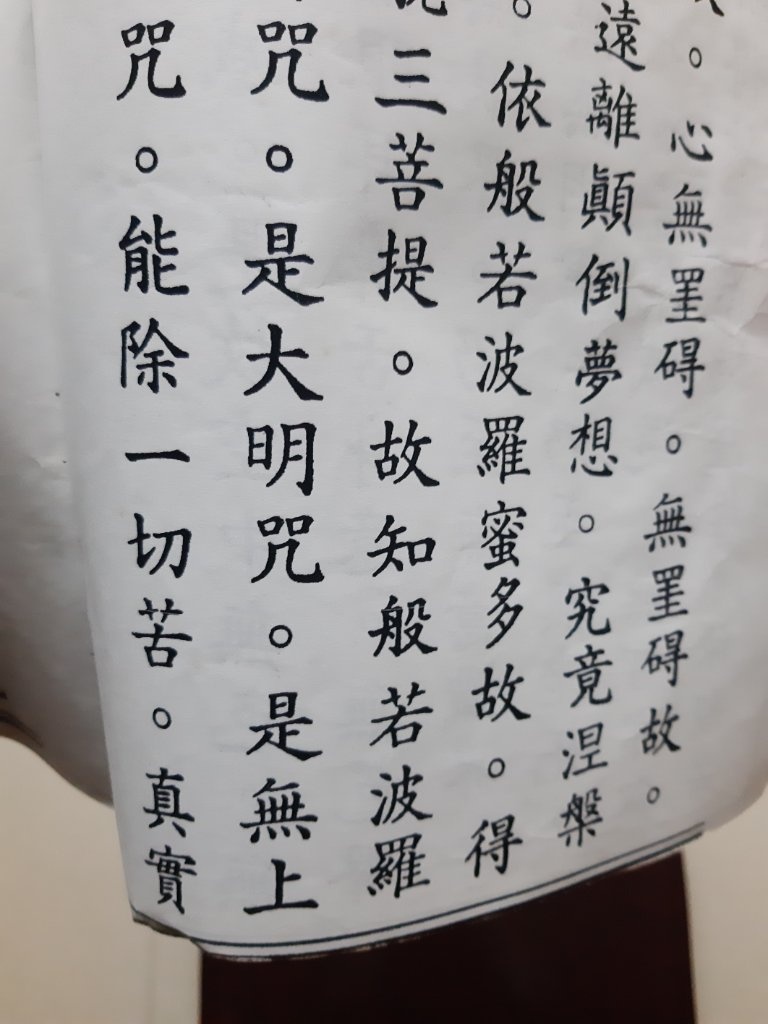 。心無罣碍。無罣碍故。
遠離顛倒夢想。究竟涅槃
。依般若波羅蜜多故。得
三菩提。故知般若波羅
咒。是大明咒。是無上
咒。能除一切苦。真實